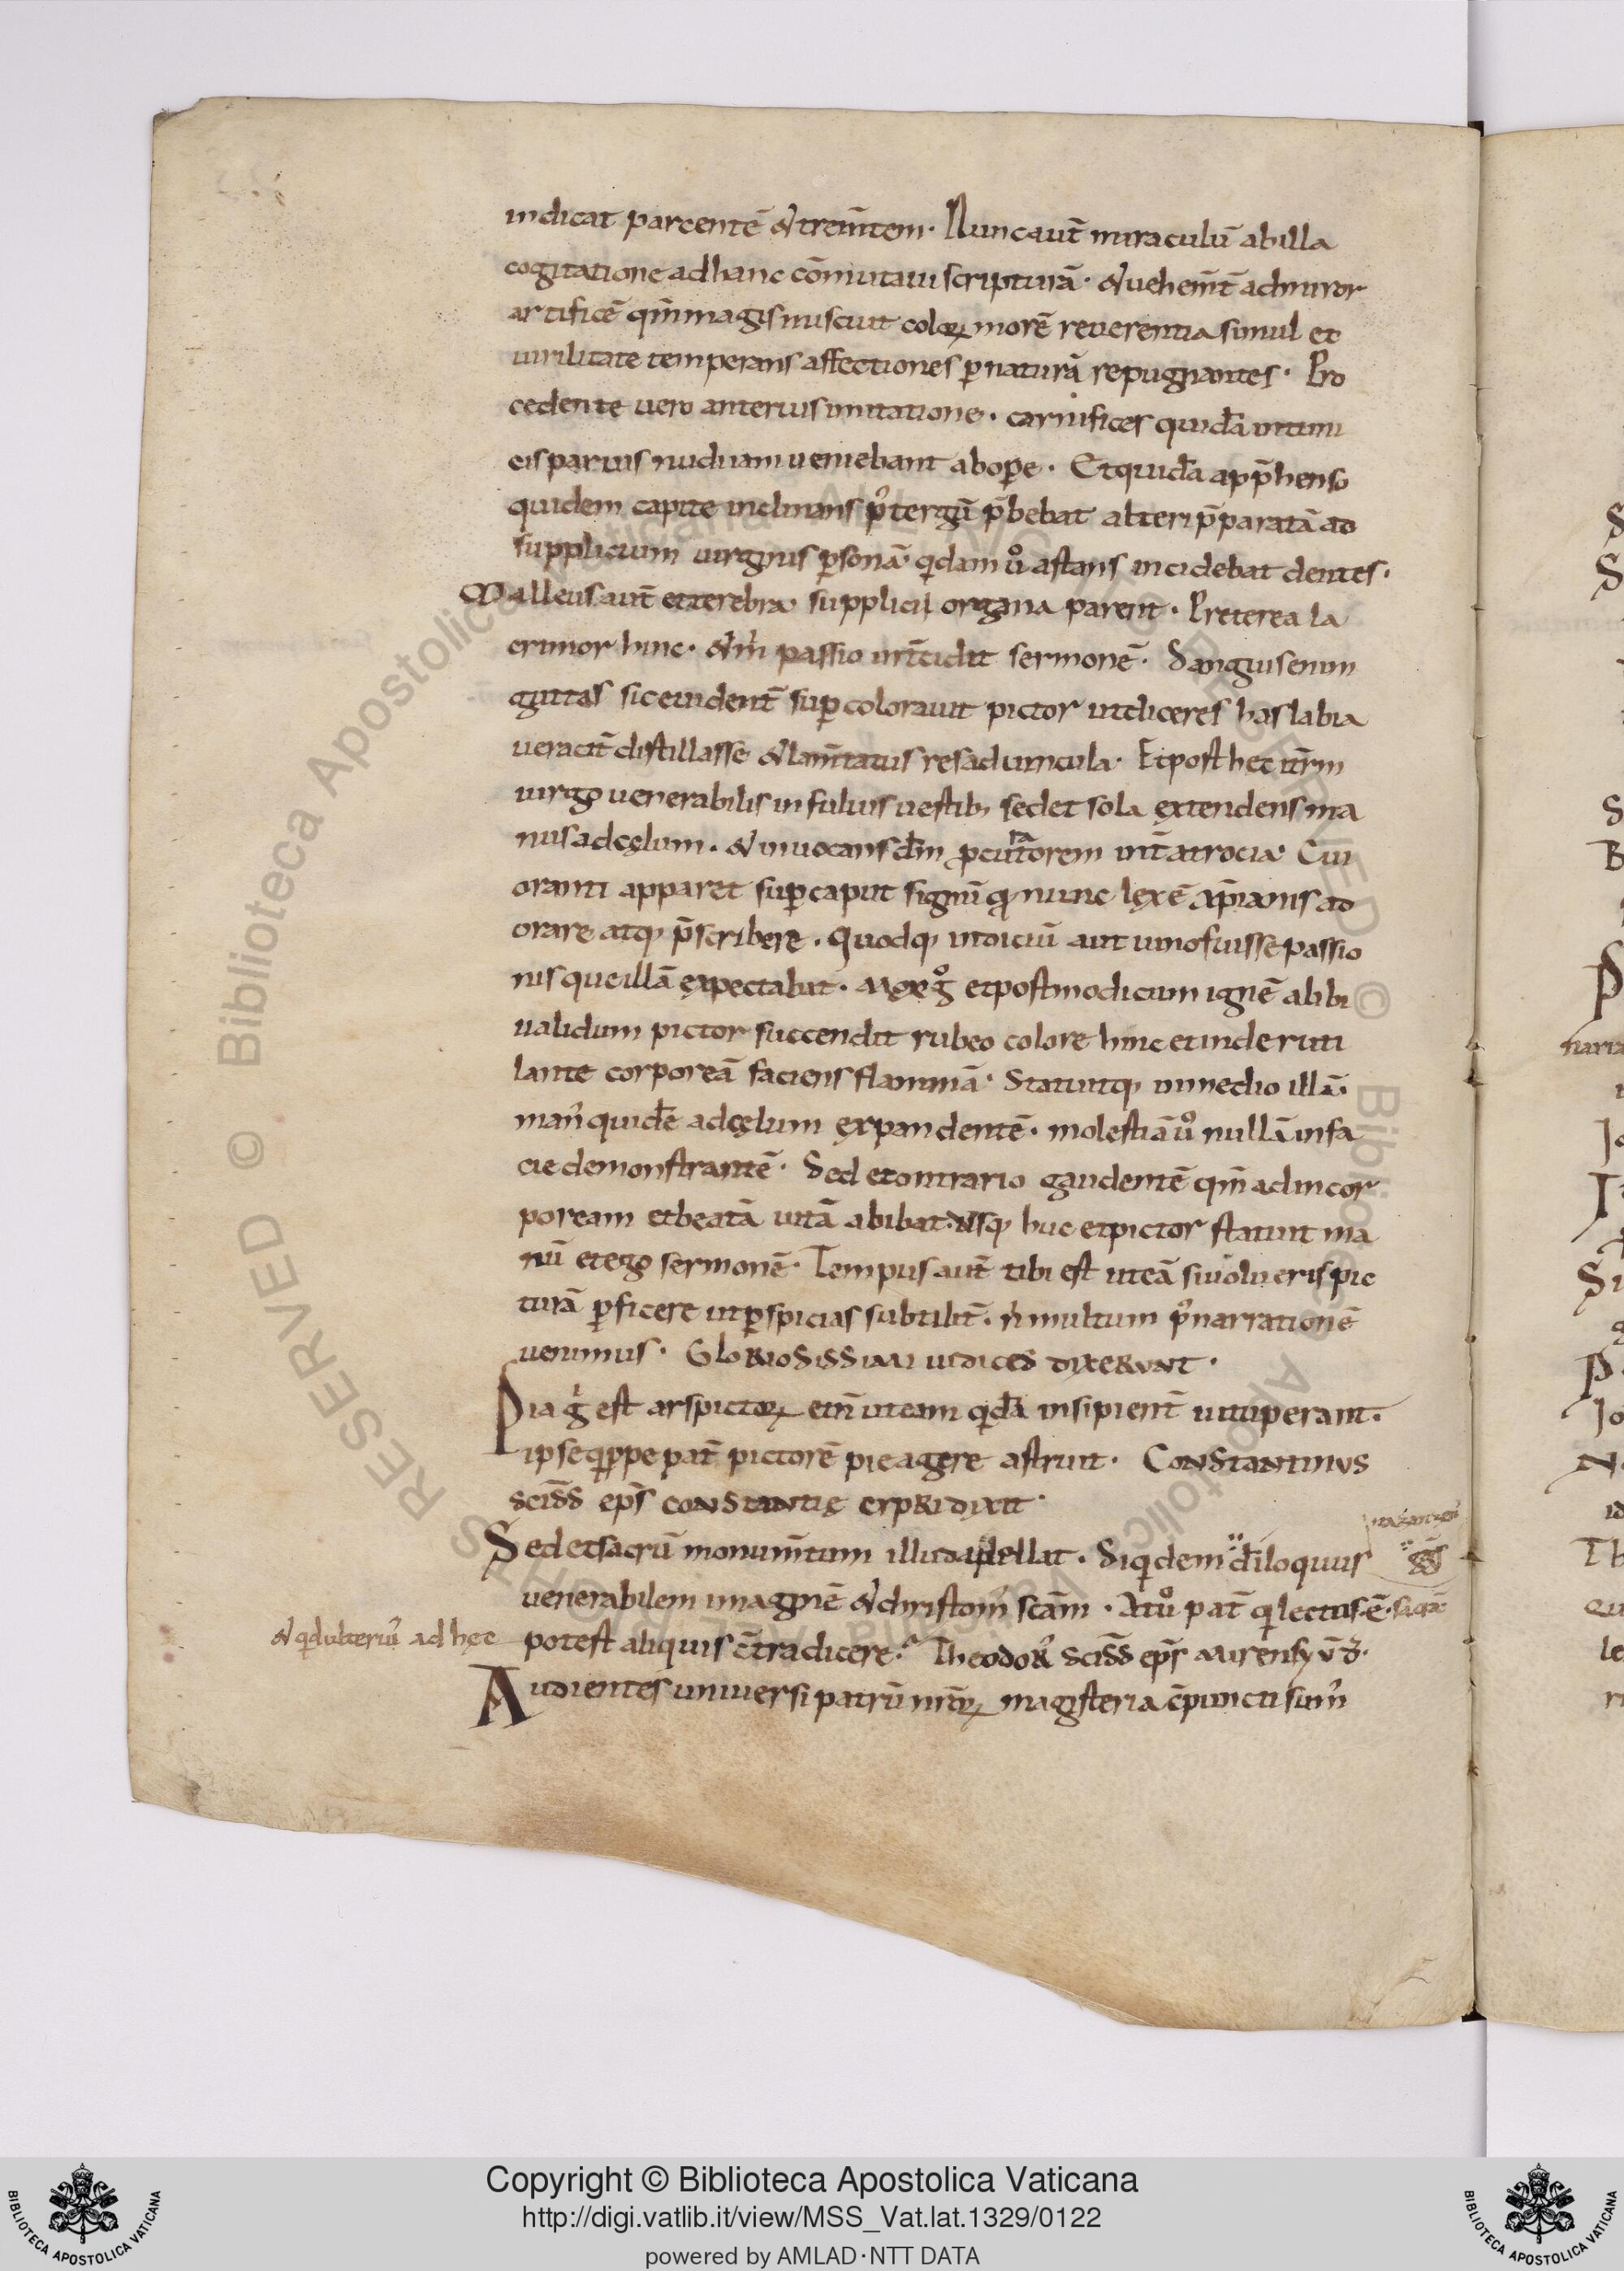 indicat parcentē & trem̄tem· Nunc aut̄ miraculū ab illa
cogitatione ad hanc cōmutaui scripturā· & uehem̄t admiror
artificē qm̄ magis miscuit coloꝝ morē reuerentia simul et
uirilitate temperans affectiones ꝑ naturā repugnantes· Pro
cedente uero anterius imitatione· carnifices quidā intimi
cis paruis nuduam ueniebant ab oꝑe· Et quidā app̄henso
quidem capite inclinans p᷒tergū p̄bebat alteri p̄paratā ad
supplicium uirginis ꝑsonā· qdam uͦ astans incidebat dentes·
Malleus aut̄ et terebra supplicii organa parent· Preterea la
crimor hinc· & m̄ passio int̄cidit sermonē· Sanguis enim
guttas sic euident̄ suꝑcolorauit pictor ut diceres has labia
ueracit̄ distillasse & lam̄tatus res ad uincula· Et post hec it̄rm
uirgo uenerabilis in fuluis uestib; sedet sola extendens ma
nus ad cęlum· & inuocans dm̄ ꝓcuratorem int̄ atrocia· Cui
oranti apparet suꝑ caput signū qͦ nunc lex ē xp̄ianis ad
orare atq; p̄scribere· Quodq; indiciū aut umo fuisse passio
nis que illā expectabat· Mox gͦ et post modicum ignē alibi
ualidum pictor succendit rubeo colore hinc et inde ruti
lante corporeā faciens flammā· Statuitq; in medio illā·
man᷒ quidē ad cęlum expandentē· molestiā uͦ nullā in fa
cie demonstrantē· Sed et contrario gaudentē qm̄ ad incor
poream et beatā uitā abibat· Usq; huc et pictor statuit ma
nū et ego sermonē· Tempus aut̄ tibi est ut eā si uolueris pic
turā ꝑficere ut ꝑspicias subtilit̄· n̄ multum p᷒ narrationē
uenimus· GLORIOSISSIMI IUDICES DIXERUNT·
Pia gͥ est ars pictoꝝ et n̄ ut eam qdā insipient̄ uituperant·
ipse qppe pat̄ pictorē pie agere astruit· CONSTANTINUS
SCISS eps̄ CONSTANTIĘ CYPRI DIXIT·
Sed et sacrū monum̄tum illud apellat· Siqdem dīloquus
nazanzen᷒
uenerabilem imaginē & christom᷒ scām· At uͦ pat̄ q lectus ē·
& qd ulteri᷒ ad hęc potest aliquis c̄tradicere? Theodor᷒ SCISS eps̄ Mirensiū d̄·
Audientes uniuersi patrū nr̄oꝝ magisteria c̄puncti sum᷒
Copyright © Biblioteca Apostolica Vaticana
http://digi.vatlib.it/view/MSS_Vat.lat.1329/0122
powered by AMLAD·NTT DATA
BIBLIOTECA APOSTOLICA VATICANA
BIBLIOTECA APOSTOLICA VATICANA